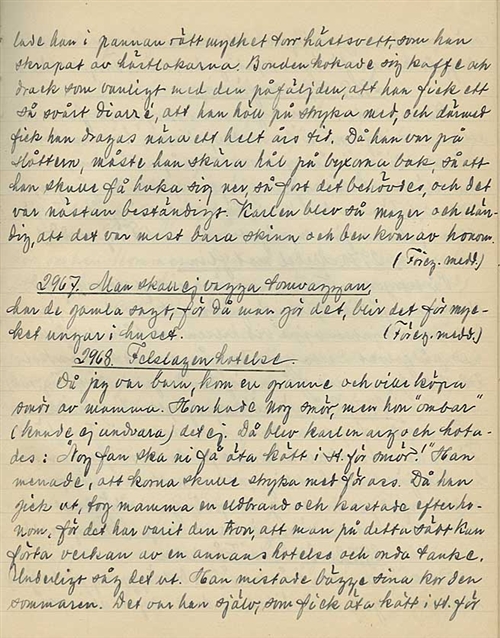 lade han i pannan rätt mycket torr hästsvett, som han
skrapat av hästlokarna. Bonden kokade sig kaffe och
drack som vanligt med den påföljden, att han fick ett
så svårt diarré, att han höll på stryka med, och därmed
fick han dragas nära ett helt års tid. Då han var på
slåttern, måste han skära hål på byxorna bak, så att
han skulle få huka sig ner, så fort det behövdes, och det
var nästan beständigt. Karlen blev så mager och elän-
dig, att det var mest bara skinn och ben kvar av honom.
(Föreg. medd.)
2967. Man skall ej vagga tomvaggan,
har de gamla sagt, för då man gör det, blir det för myc-
ket ungar i huset. (Föreg. medd.)
2968. Felslagen hotelse.
Då jag var barn, kom en granne och ville köpa
smör av mamma. Hon hade nog smör, men hon "ombar"
(kunde ej undvara) det ej. Då blev karlen arg och hota-
des: "Nog fan ska ni få äta kött i st. för smör!" Han
menade, att korna skulle stryka med för oss. Då han
gick ut, tog mamma en eldbrand och kastade efter ho-
nom, för det har varit den tron, att man på detta sätt kan
förta verkan av en annans hotelse och onda tanke.
Underligt såg det ut. Han mistade bägge sina kor den
sommaren. Det var han själv, som fick äta kött i st. för